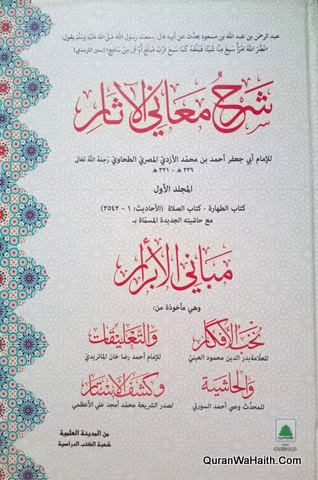 عبد الرحمن بن عبد الله بن مسعود يحدّث عن أبيه قال: سمعت رسول الله صلّى الله عليه وسلّم يقول:
«نضّر الله امرأً سمع منّا شيئًا فبلّغه كما سمع فربّ مبلّغ أوعى من سامع» [سنن الترمذي]
شرح معاني الآثار
للإمام أبي جعفر أحمد بن محمّد الأزديّ المصريّ الطحاويّ رحمه الله تعالى
٢٣٩ ه - ٣٢١ ه
المجلد الأول
كتاب الطهارة - كتاب الصلاة (الأحاديث: ١ - ٢٥٤٢)
مع حاشيته الجديدة المسمّاة بـ
مباني الأبرار
وهي مأخوذة من:
نخب الأفكار والتعليقات
للعلامة بدر الدين محمود العيني للإمام أحمد رضا خان الماتريدي
والحاشية وكشف الأستار
للمحدّث وصي أحمد السورتي لصدر الشريعة محمّد أمجد علي الأعظمي
من المدينة العلمية
شعبة الكتب الدراسية
QuranWaHaith.Com